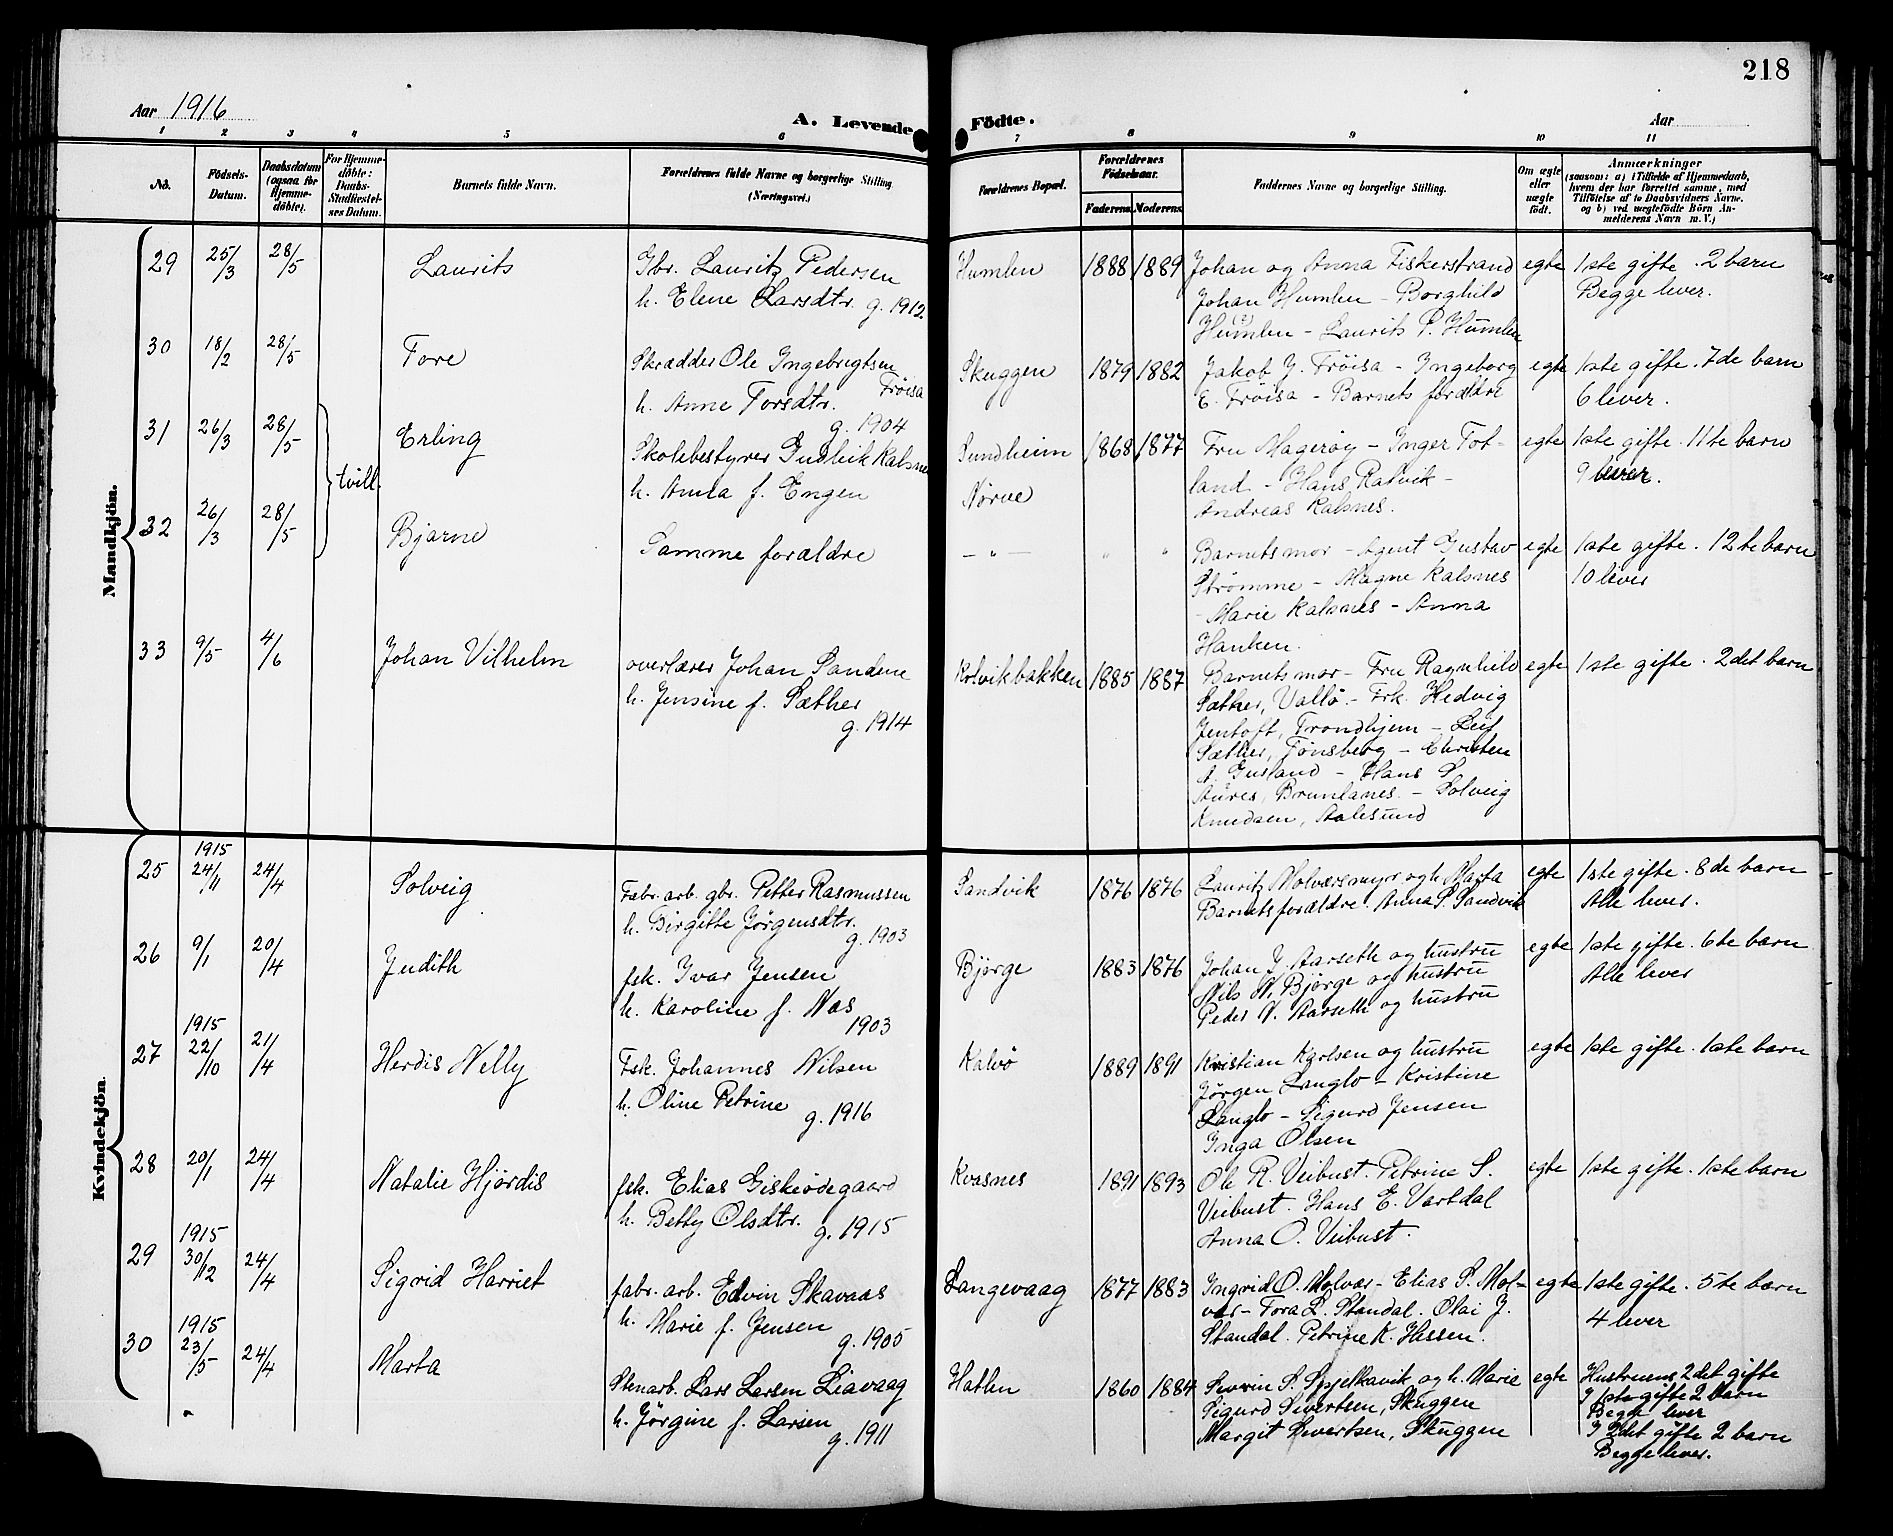 218
Aar 1916
A. Levende Födte.
Aar
1 2 3 4 5 6 7 8 9 10 11
No.
Födsels-Datum.
Daabsdatum (ogsaa for Hjemme-döbte).
For Hjemme-döbte: Daabs-Stadfæstel-ses Datum.
Barnets fulde Navn.
Forældrenes fulde Navne og borgerlige Stilling. (Næringsvei.)
Forældrenes Bopæl.
Forældrenes Födselsaar.
Faderens. Moderens.
Faddernes Navne og borgerlige Stilling.
Om ægte eller uægte födt.
Anmærkninger
(saasom: a) i Tilfælde af Hjemmedaab, hvem der har forrettet samme, med Tilföielse af to Daabsvidners Navne. og b) ved uægtefödte Börn An-melderens Navn m. V.)
Mandkjön.
29 25/3 28/5 Laurits
Gbr. Laurits Pedersen
h. Elene Larsdtr. g. 1912
Humlen 1888 1889
Johan og Anna Fiskerstrand
Johan Humlen - Borghild
Humlen - Laurits P. Humlen
egte 1ste gifte. 2 barn
Begge lever.
30 18/2 28/5 Tore
Skrædder Ole Ingebrigtsen
Frøisa
h. Anne Torsdtr.
g. 1904
Skuggen 1879 1882
Jakob J. Frøisa - Ingeborg
E. Frøisa - Barnets forældre
egte 1ste gifte. 7de barn
6 lever.
31 26/3 28/5 tvill. Erling
Skolebestyrer Gudleik Kalsnes
h. Anna f. Engen
Sundheim
Nørve
1868 1877
Fru Magerøy - Inger Tot-
land - Hans Ratvik -
Andreas Kalsnes.
egte 1ste gifte. 11te barn
9 lever.
32 26/3 28/5 Bjarne
Samme forældre
- " - " "
Barnets mor - Agent Gustav
Strømme - Magne Kalsnes
- Marie Kalsnes - Anna
Hanken.
egte 1ste gifte. 12te barn
10 lever
33 9/5 4/6 Johan Vilhelm
overlærer Johan Sandene
h. Jensine f. Sæther
g. 1914
Kolvikbakken 1885 1887
Barnets mor - Fru Ragnhild
Sæther, Vallö. - Frk. Hedvig
Jentoft, Trondhjem - Leif
Sæther, Tønsberg - Christen
A. Gusland - Hans S.
Aüres, Brunlanes. - Solveig
Knudsen, Aalesund
egte 1ste gifte. 2det barn
Kvindekjön.
25 1915 24/11 24/4 Solveig
Fabr. arb. gbr. Petter Rasmussen
h. Birgitte Jørgensdtr.
g. 1903
Sandvik 1876 1876
Lauritz Molværsmyr og h. Marta
Barnets forældre. Anna P. Sandvik
egte 1ste gifte. 8de barn
Alle lever.
26 9/1 20/4 Judith
fsk. Ivar Jensen
h. Karoline f. Næs
1903
Bjørge 1883 1876
Johan J. Aarseth og hustru
Nils N. Bjørge og hustru
Peder N. Aarseth og hustru
egte 1ste gifte. 6te barn
Alle lever
27 1915 22/10 21/4 Herdis Nelly
Fsk. Johannes Nilsen
h. Oline Petrine
g. 1916
Kalvø 1889 1891
Kristian Karlsen og hustru
Jørgen Langlo - Kristine
Langlo - Sigurd Jensen
Inga Olsen
egte 1ste gifte. 1ste barn
28 20/1 24/4 Natalie Hjørdis
fsk. Elias Giskeødegaard
h. Betty Olsdtr. g. 1915
Kvasnes 1891 1893
Ole R. Veibust. Petrine S.
Veibust. Hans E. Vartdal
Anna O. Veibust.
egte 1ste gifte. 1ste barn
29 1915 30/12 24/4 Sigrid Harriet
fabr. arb. Edvin Skavaas
h. Marie f. Jensen
g. 1905
Langevaag 1877 1883
Ingrid O. Molvær - Elias S. Mol-
vær - Tora L. Standal. Olai J.
Standal. Petrine K. Hessen.
egte 1ste gifte. 5te barn
4 lever
30 1915 23/5 24/4 Marta
Stenarb. Lars Larsen Liavaag
h. Jørgine f. Larsen
g. 1911
Hatlen 1860 1884
Severin S. Spjelkavik og h. Marie
Sigurd Sivertsen, Skuggen
Margit Sivertsen, Skuggen
egte Hustruens 2det gifte
I 1ste gifte 2 barn
Begge lever
I 2det gifte 2 barn
Begge lever.